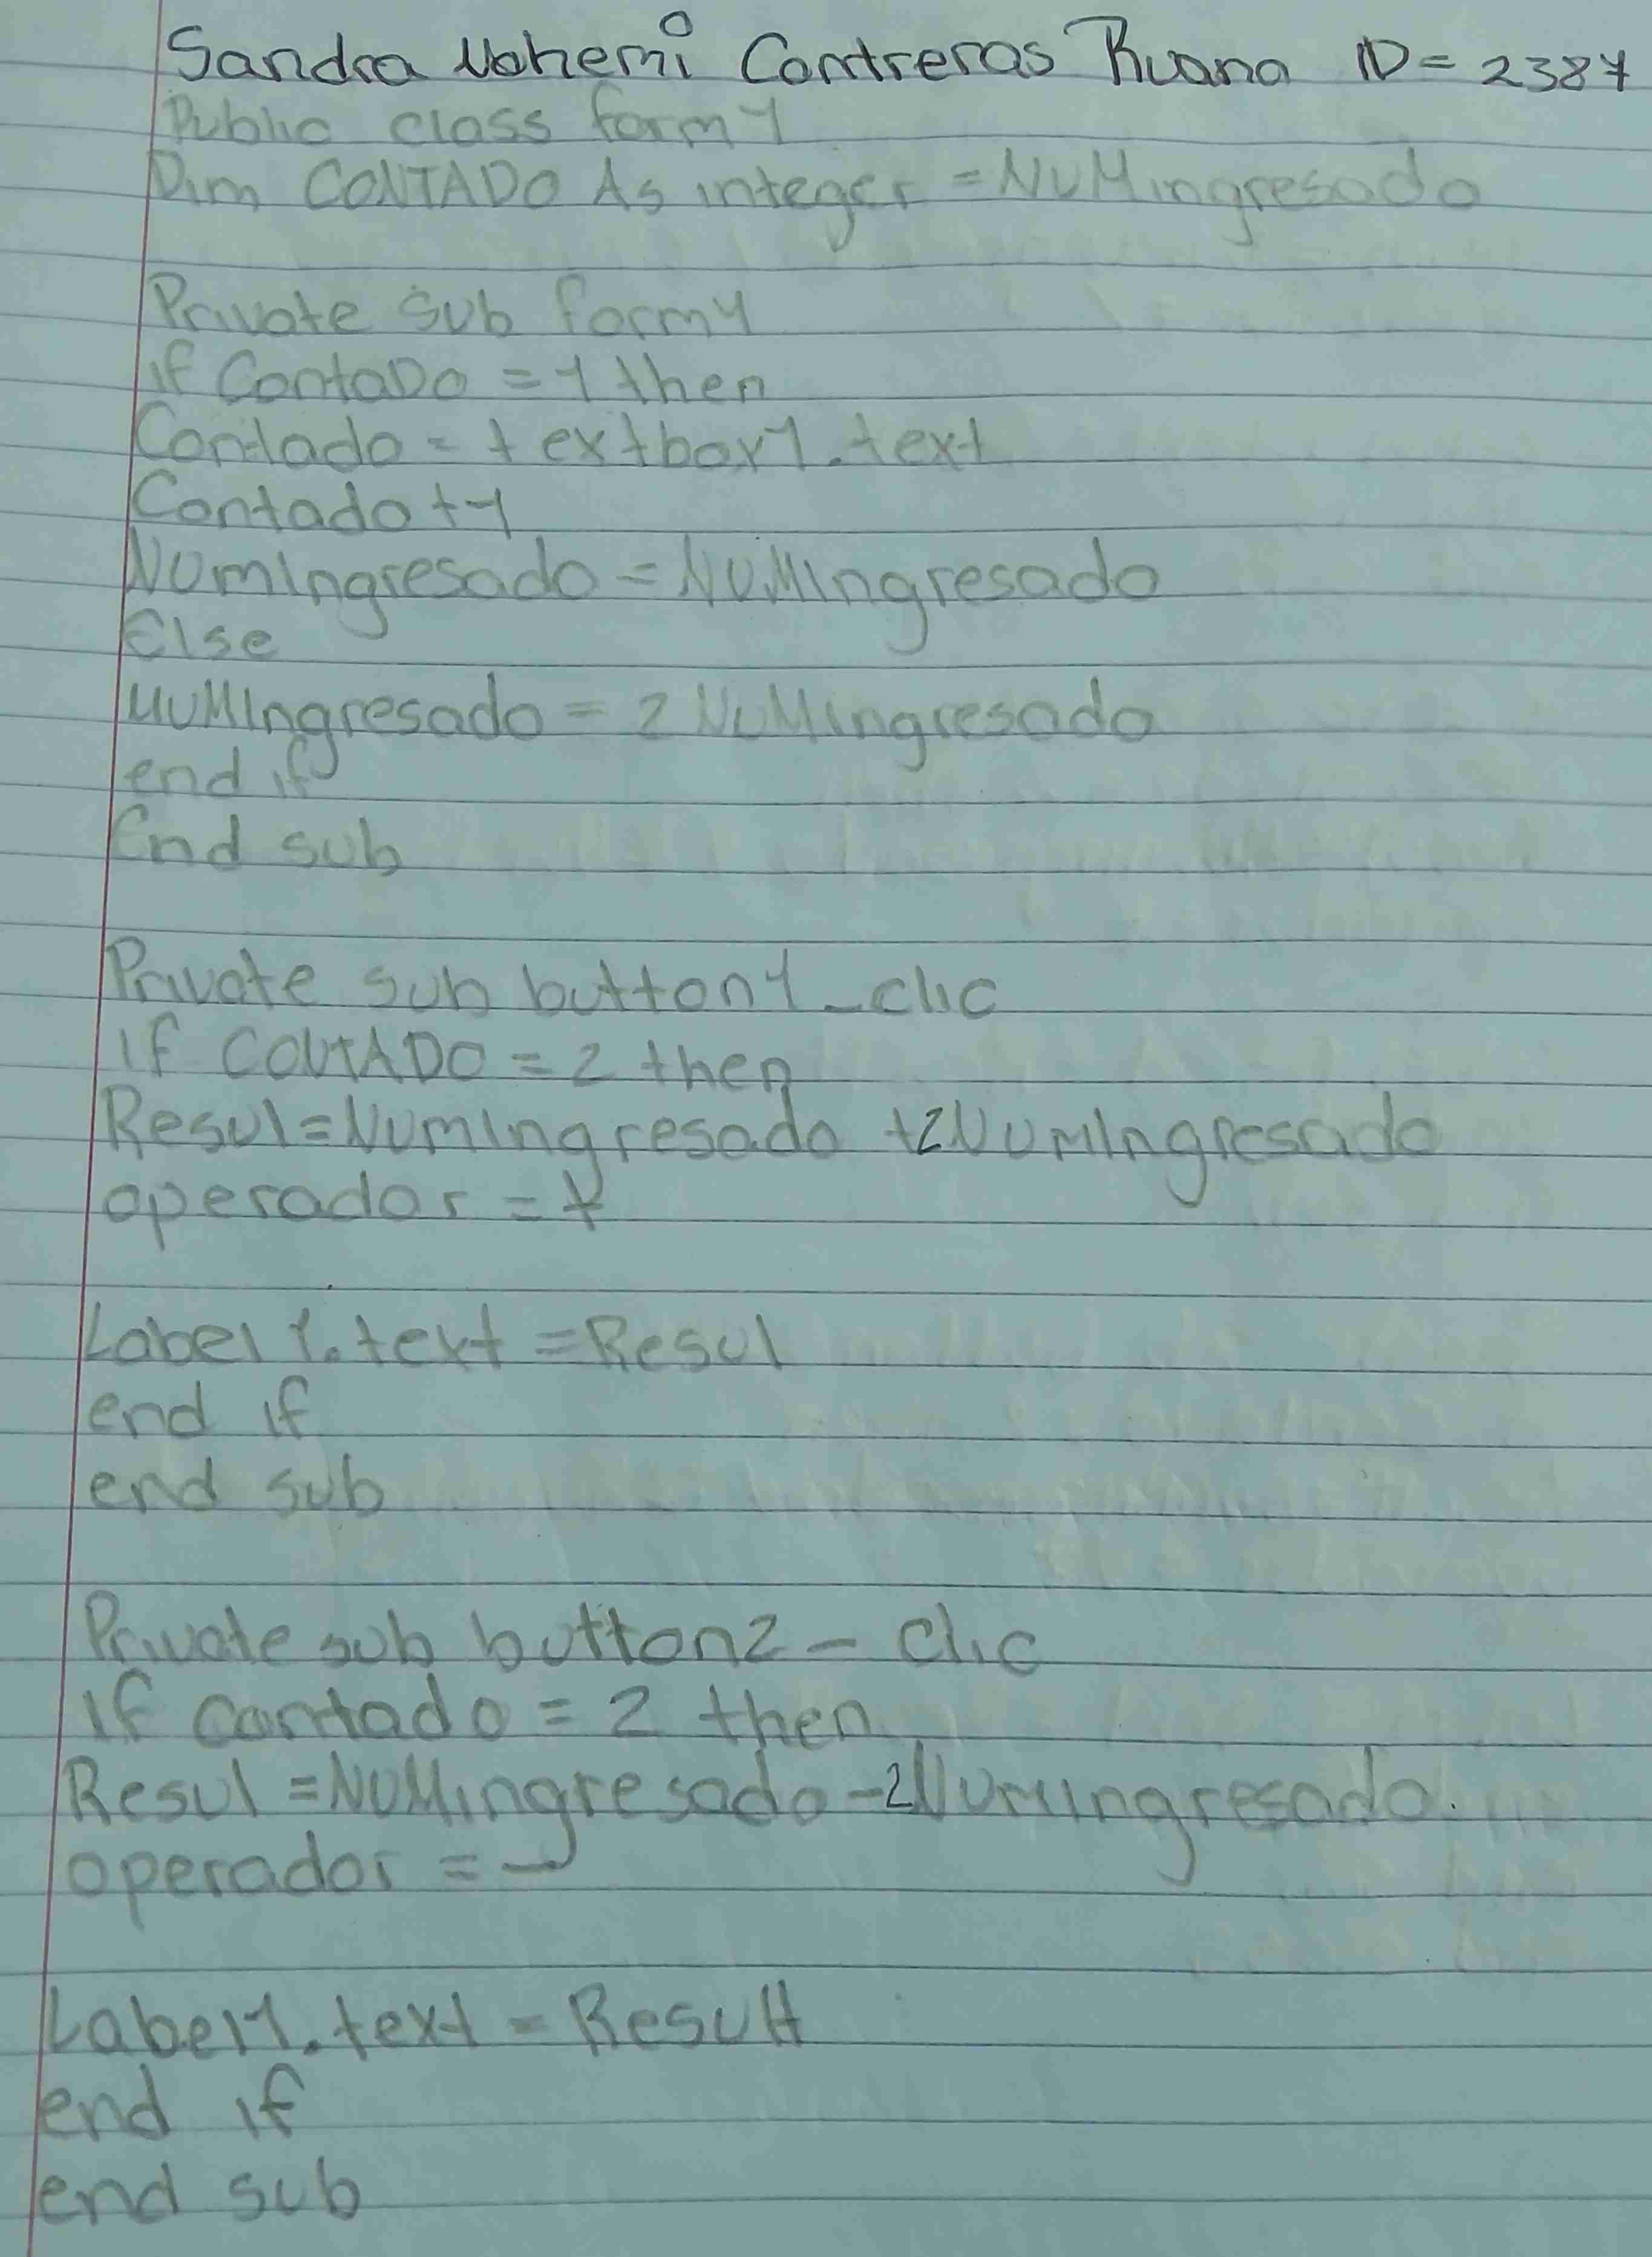 Sandra Nohemi Contreras Ruano ID = 2387
Public class form1
Dim CONTADO As integer = NUMingresado
Private Sub form1
if ContaDo = 1 then
Contado = textbox1.text
Contado + 1
NUmIngresado = NUMIngresado
Else
NUMIngresado = 2 NUMingresado
end if
End sub
Private sub button1_clic
If CONTADO = 2 then
Resul = NUmIngresado + 2NUmIngresado
operador = +
Label1.text = Resul
end if
end sub
Private sub button2 - clic
If contado = 2 then
Resul = NUMingresado - 2NUmingresado.
operador = -
Label1.text = Result
end if
end sub